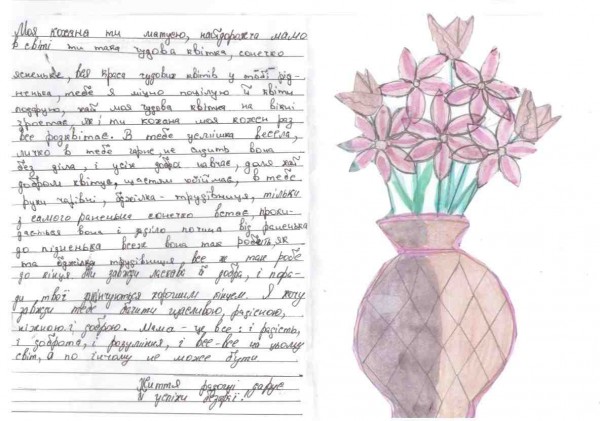 Моя кохана ти матусю, найдорожча мамо
в світі ти така чудова квітка, сонечко
ясненьке, вся краса чудових квітів у тобі рід-
ненька, тебе я міцно поцілую й квіти
подарую, хай моя чудова квітка на вікні
зростає, як і ти кохана моя кожен раз
все розквітає. В тебе усмішка весела,
личко в тебе гарне, не сидить вона
без діла, і усіх добра навчає, доля хай
добром квітує, щастям обіймає, в тебе
руки чарівні, бджілка - трудівниця, тільки
з самого раненька сонечко встає, проки-
дається вона і діло почина від раненька
до пізненька все ж вона так робить, як
та бджілка трудівниця все ж таке робе
до кінця. Ти завжди ласкава й добра, і пора-
ди твої закінчуються хорошим кінцем. Я хочу
завжди тебе бачити щасливою, радісною,
ніжною і доброю. Мама - це все: і радість,
і доброта, і розуміння, і все-все на цьому
світі, а по іншому не може бути.
Життя радощі дарує
й успіхи безкраї!